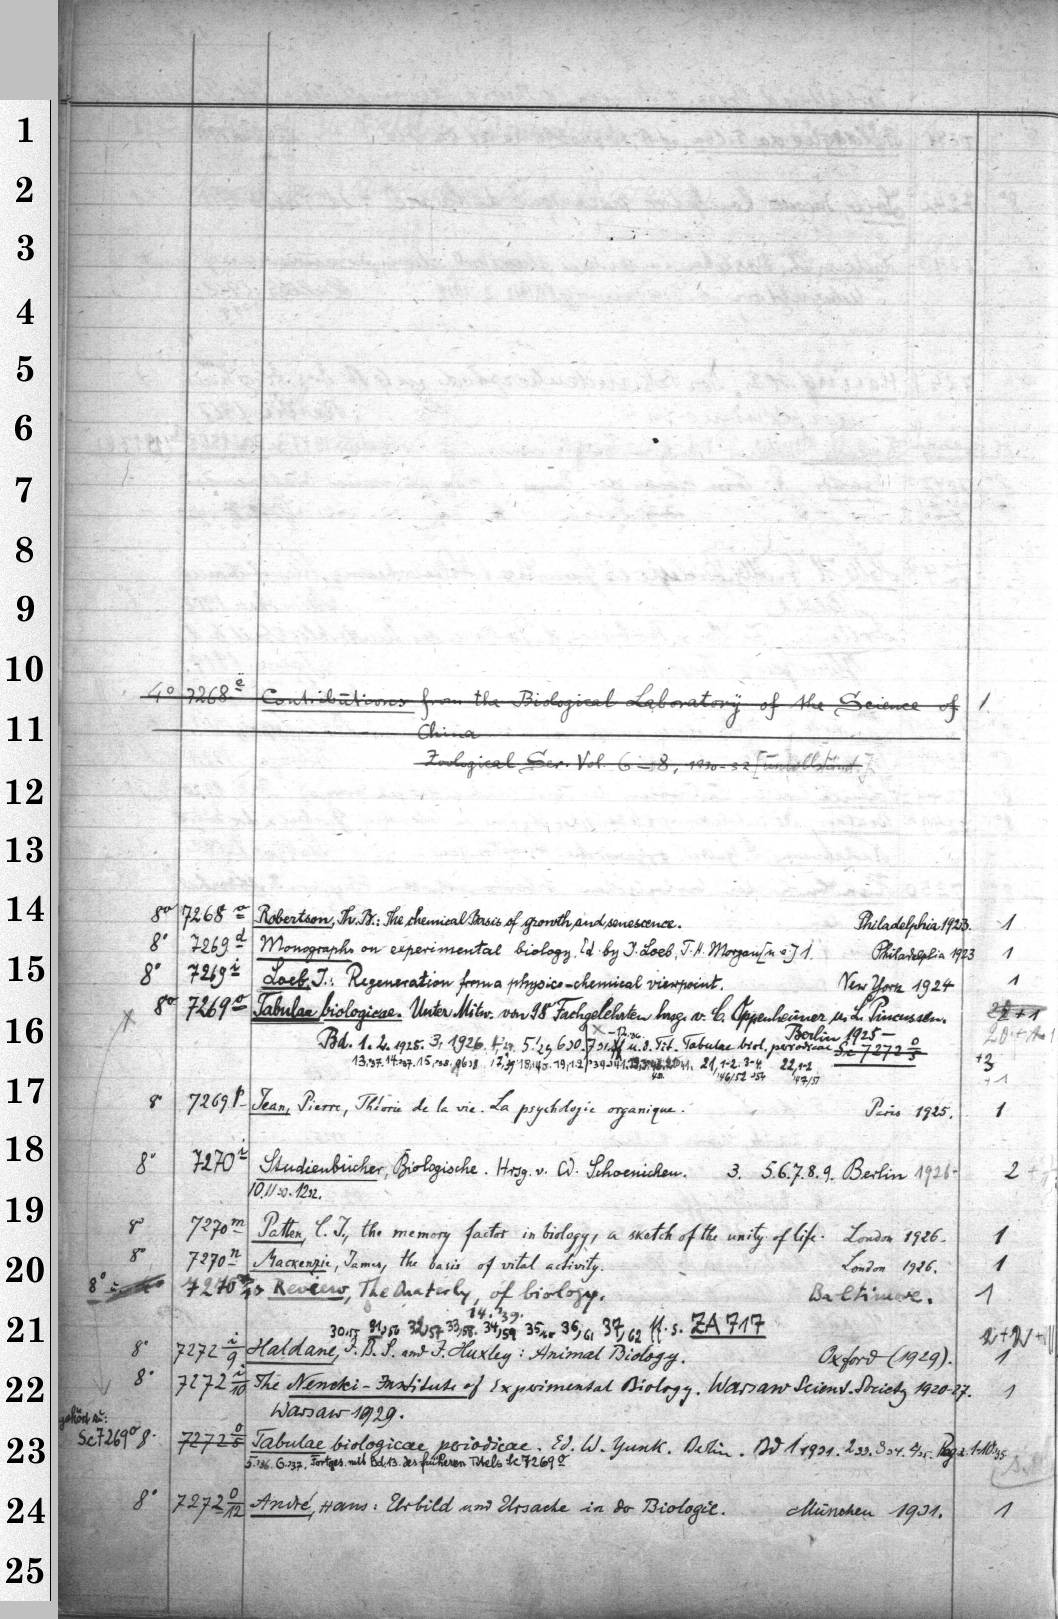 1
2
3
4
5
6
7
8
9
10
4° 7268 e Contributions from the Biological Laboratory of the Science of 1
11
China
Zoological Ser. Vol. 6-8, 1930-32 [unvollständ.]
12
13
14
8° 7268 o Robertson, Th. Br.: The chemical Basis of growth and senescence. Philadelphia 1923. 1
8° 7269 d Monographs on experimental biology. Ed. by J. Loeb, T. H. Morgan [u a] 1. Philadelphia 1923 1
15
8° 7269 i Loeb, J.: Regeneration from a physico-chemical viewpoint. New York 1924 1
8° 7269 o Tabulae biologicae. Unter Mitw. von 98 Fachgelehrten hrsg. v. C. Oppenheimer u. L. Pincussen.
16
Berlin 1925-
Bd. 1. 2. 1925. 3. 1926. u. d. Tit. Tabulae biol. periodicae Sc 7272 o/5
+3
17
8° 7269 p Jean, Pierre, Théorie de la vie. La psychologie organique. Paris 1925. 1
18
8° 7270 i Studienbücher, Biologische. Hrsg. v. W. Schoenichen. 3. 5.6.7.8.9. Berlin 1926- 2
10.11
19
8° 7270 m Patten, C. J., the memory factor in biology, a sketch of the unity of life. London 1926. 1
20
8° 7270 n Mackenzie, James, the basis of vital activity. London 1926. 1
8° 7270 Review, The Quaterly, of biology. Baltimore. 1
21
30,55 31,56 32,57 33,58. 34,59 35,60 36,61 37,62 ff. s. ZA 717
8° 7272 i/9 Haldane, J. B. S. and J. Huxley: Animal Biology. Oxford (1929). 1
22
8° 7272 i/10 The Nencki-Institute of Experimental Biology. Warsaw Scient. Society 1920-27. 1
Warsaw 1929.
gehört zu:
23
Sc 7269 o 8° 7272 o/5 Tabulae biologicae periodicae. Ed. W. Junk. Berlin. Bd 1 1931. 2 33. 3 34. 4 35.
5.36. 6.37. Fortges. mit Bd. 13. des früheren Titels Sc 7269 o
24
8° 7272 o/12 André, Hans: Urbild und Ursache in der Biologie. München 1931. 1
25